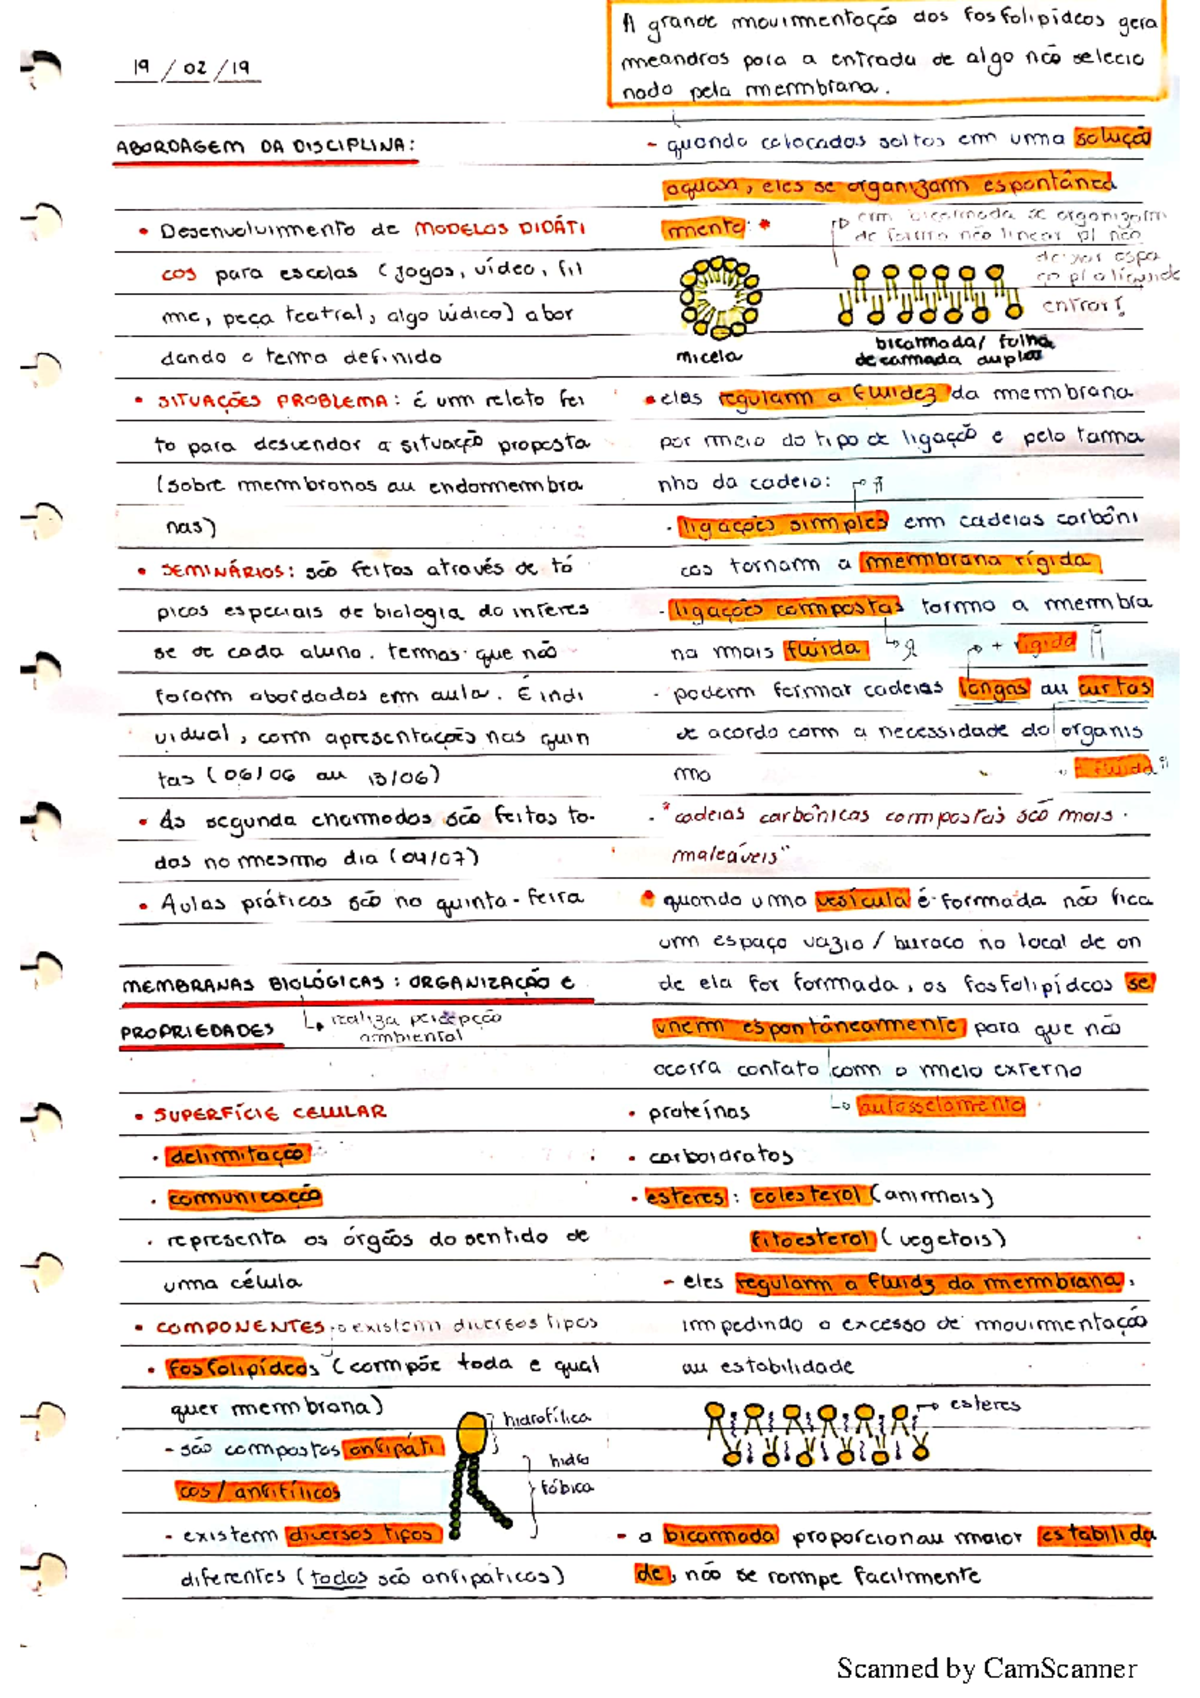 19/02/19
A grande movimentação dos fosfolipídeos gera
meandros para a entrada de algo não selecio
nado pela membrana.
ABORDAGEM DA DISCIPLINA:
• Desenvolvimento de MODELOS DIDÁTI
COS para escolas (jogos, vídeo, fil
me, peça teatral, algo lúdico) abor
dando o tema definido
• SITUAÇÕES PROBLEMA: É um relato fei
to para desvendar a situação proposta
(sobre membranas ou endomembra
nas)
• SEMINÁRIOS: são feitos através de tó
picos especiais de biologia do interes
se de cada aluno. temas que não
foram abordados em aula. É indi
vidual, com apresentações nas quin
tas (06/06 ou 13/06)
• As segunda chamadas são feitas to-
das no mesmo dia (04/07)
• Aulas práticas são na quinta-feira
MEMBRANAS BIOLÓGICAS: ORGANIZAÇÃO E
PROPRIEDADES
↳ realiza percepção
ambiental
• SUPERFÍCIE CELULAR
· delimitação
· comunicação
· representa os órgãos do sentido de
uma célula
• COMPONENTES → existem diversos tipos
• fosfolipídeos (compõe toda e qual
quer membrana)
- são compostos anfipáti
cos/anfifílicos
- existem diversos tipos
diferentes (todos são anfipáticos)
hidrofílica
hidro
fóbica
- quando colocados soltos em uma solução
aquosa, eles se organizam espontânea
mente: *
em bicamada se organizam
de forma não linear p/ não
deixar espa
ço p/ o líquido
entrar!
micela
bicamada/ folha
de camada dupla
• eles regulam a fluidez da membrana
por meio do tipo de ligação e pelo tama
nho da cadeia:
· ligações simples em cadeias carbôni
cas tornam a membrana rígida
· ligações compostas torna a membra
na mais fluída
→ + rígida
· podem formar cadeias longas ou curtas
de acordo com a necessidade do organis
mo
+ fluída
· "cadeias carbônicas compostas são mais
maleáveis"
• quando uma vesícula é formada não fica
um espaço vazio / buraco no local de on
de ela for formada, os fosfolipídeos se
unem espontâneamente para que não
ocorra contato com o meio externo
↳ autosselamento
• proteínas
• carboidratos
• esteres: colesterol (animais)
fitoesterol (vegetais)
- eles regulam a fluidz da membrana,
impedindo o excesso de movimentação
ou estabilidade
→ esteres
- a bicamada proporcionau maior estabilida
de, não se rompe facilmente
Scanned by CamScanner